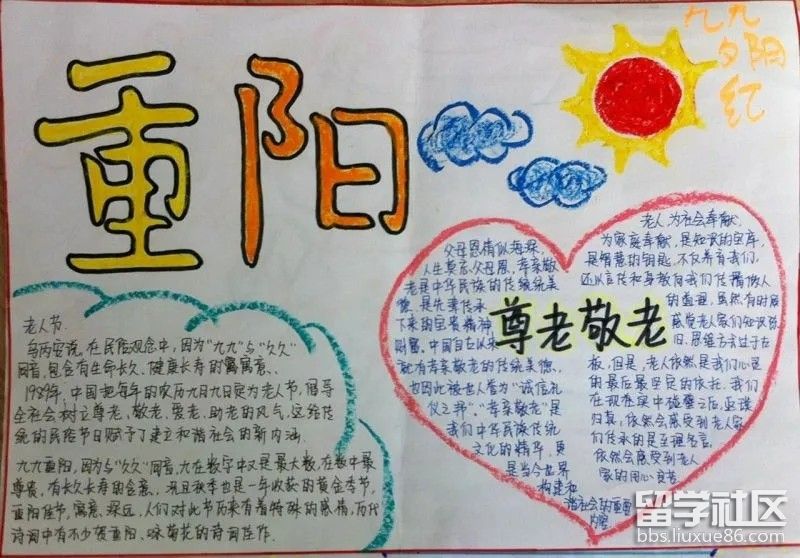 重阳
九九
夕阳
红
老人节.
乌丙安说,在民俗观念中,因为“九九”与“久久”
同音,包含有生命长久、健康长寿的寓意.
1989年,中国把每年的农历九月九日定为老人节,倡导
全社会树立尊老、敬老、爱老、助老的风气,这给传
统的民俗节日赋予了建立和谐社会的新内涵.
九九重阳,因为与“久久”同音,九在数字中又是最大数,在数中最
尊贵,有长久长寿的含意,况且秋季也是一年收获的黄金季节,
重阳佳节,寓意深远,人们对此节历来有着特殊的感情,历代
诗词中有不少贺重阳,咏菊花的诗词佳作.
父母恩情似海深,
人生莫忘父母恩,孝亲敬
老是中华民族的传统美
德,是先辈传承
下来的宝贵精神
财富.中国自古以来
就有孝亲敬老的传统美德,
也因此被世人誉为“诚信礼
仪之邦”,“孝亲敬老”是
我们中华民族传统
文化的精华,更
是当今世界
构建和
谐社会的重要
内容
尊老敬老
老人,为社会奉献,
为家庭奉献,是知识的宝库,
是智慧的钥匙,不仅养育我们,
还以言传和身教向我们传播做人
的道理.虽然有时候
感觉老人家们知识陈
旧、思维方式过于古
板,但是,老人依然是我们心灵
的最后最坚实的依托,我们
在现实中碰壁之后,返璞
归真,依然会感受到老人家
们传承的是至理名言,
依然会感受到老人
家的用心良苦
留学社区
bbs.liuxue86.com